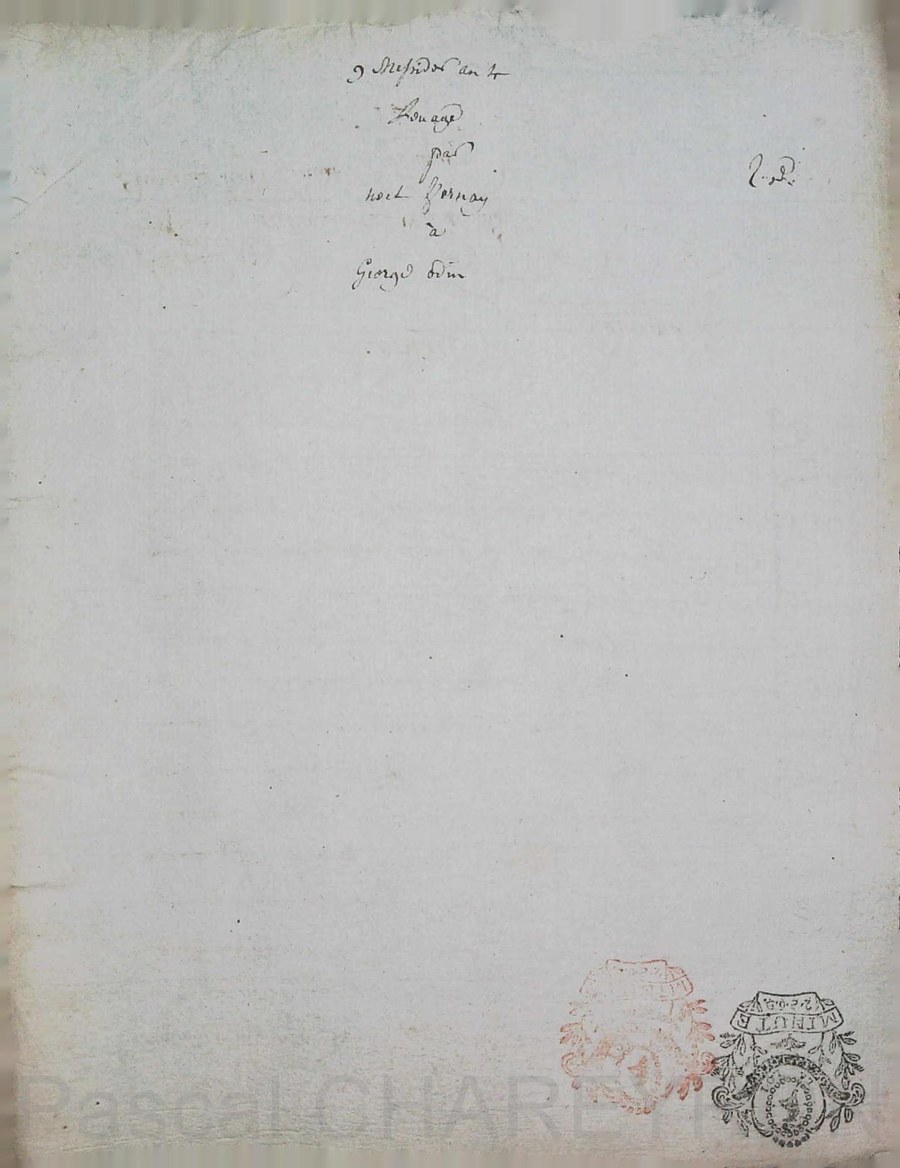 9 Messidor an 4
par
noel Vernay
à
George odin
MINUTE
Pascal CHAREYRON